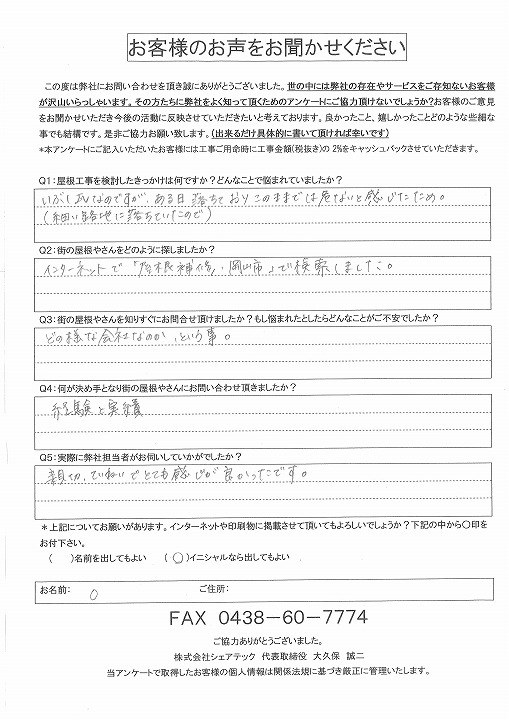 お客様のお声をお聞かせください
この度は弊社にお問い合わせを頂き誠にありがとうございました。世の中には弊社の存在やサービスをご存知ないお客様
が沢山いらっしゃいます。その方たちに弊社をよく知って頂くためのアンケートにご協力頂けないでしょうか?お客様のご意見
をお聞かせいただき今後の活動に反映させていただきたいと考えております。良かったこと、嬉しかったことどのような些細な
事でも結構です。是非ご協力お願い致します。(出来るだけ具体的に書いて頂ければ幸いです)
*本アンケートにご記入いただいたお客様には工事ご用命時に工事金額(税抜き)の 2%をキャッシュバックさせていただきます。
Q1:屋根工事を検討したきっかけは何ですか?どんなことで悩まれていましたか?
いぶし瓦なのですが、ある日落ちておりこのままでは危ないと感じたため。
(細い路地に落ちていたので)
Q2:街の屋根やさんをどのように探しましたか?
インターネットで「屋根補修」・岡山市」で検索しました。
Q3:街の屋根やさんを知りすぐにお問合せ頂けましたか?もし悩まれたとしたらどんなことがご不安でしたか?
どの様な会社なのか、という事。
Q4:何が決め手となり街の屋根やさんにお問い合わせ頂きましたか?
経験と実績
Q5:実際に弊社担当者がお伺いしていかがでしたか?
親切、ていねいでとても感じが良かったです。
*上記についてお願いがあります。インターネットや印刷物に掲載させて頂いてもよろしいでしょうか?下記の中から〇印を
お付下さい。
( )名前を出してもよい (〇)イニシャルなら出してもよい
お名前: O ご住所:
FAX 0438-60-7774
ご協力ありがとうございました。
株式会社シェアテック 代表取締役 大久保 誠二
当アンケートで取得したお客様の個人情報は関係法規に基づき厳正に管理いたします。